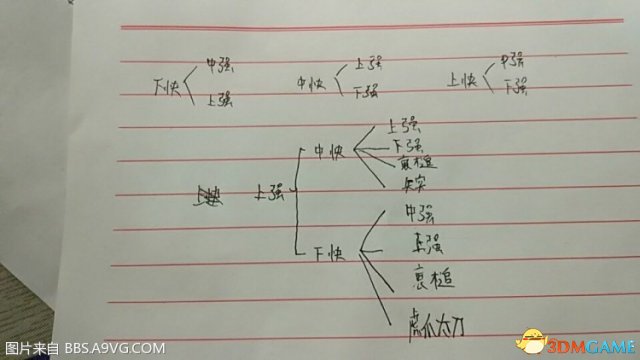 中强 上强 中强
下快 中快 上快
上强 下强 下强
上强
中快 下强
裏槌
上强 失实
中强
下快 上强
裏槌
虎爪太刀
图片来自 BBS.A9VG.COM
3DMGAME